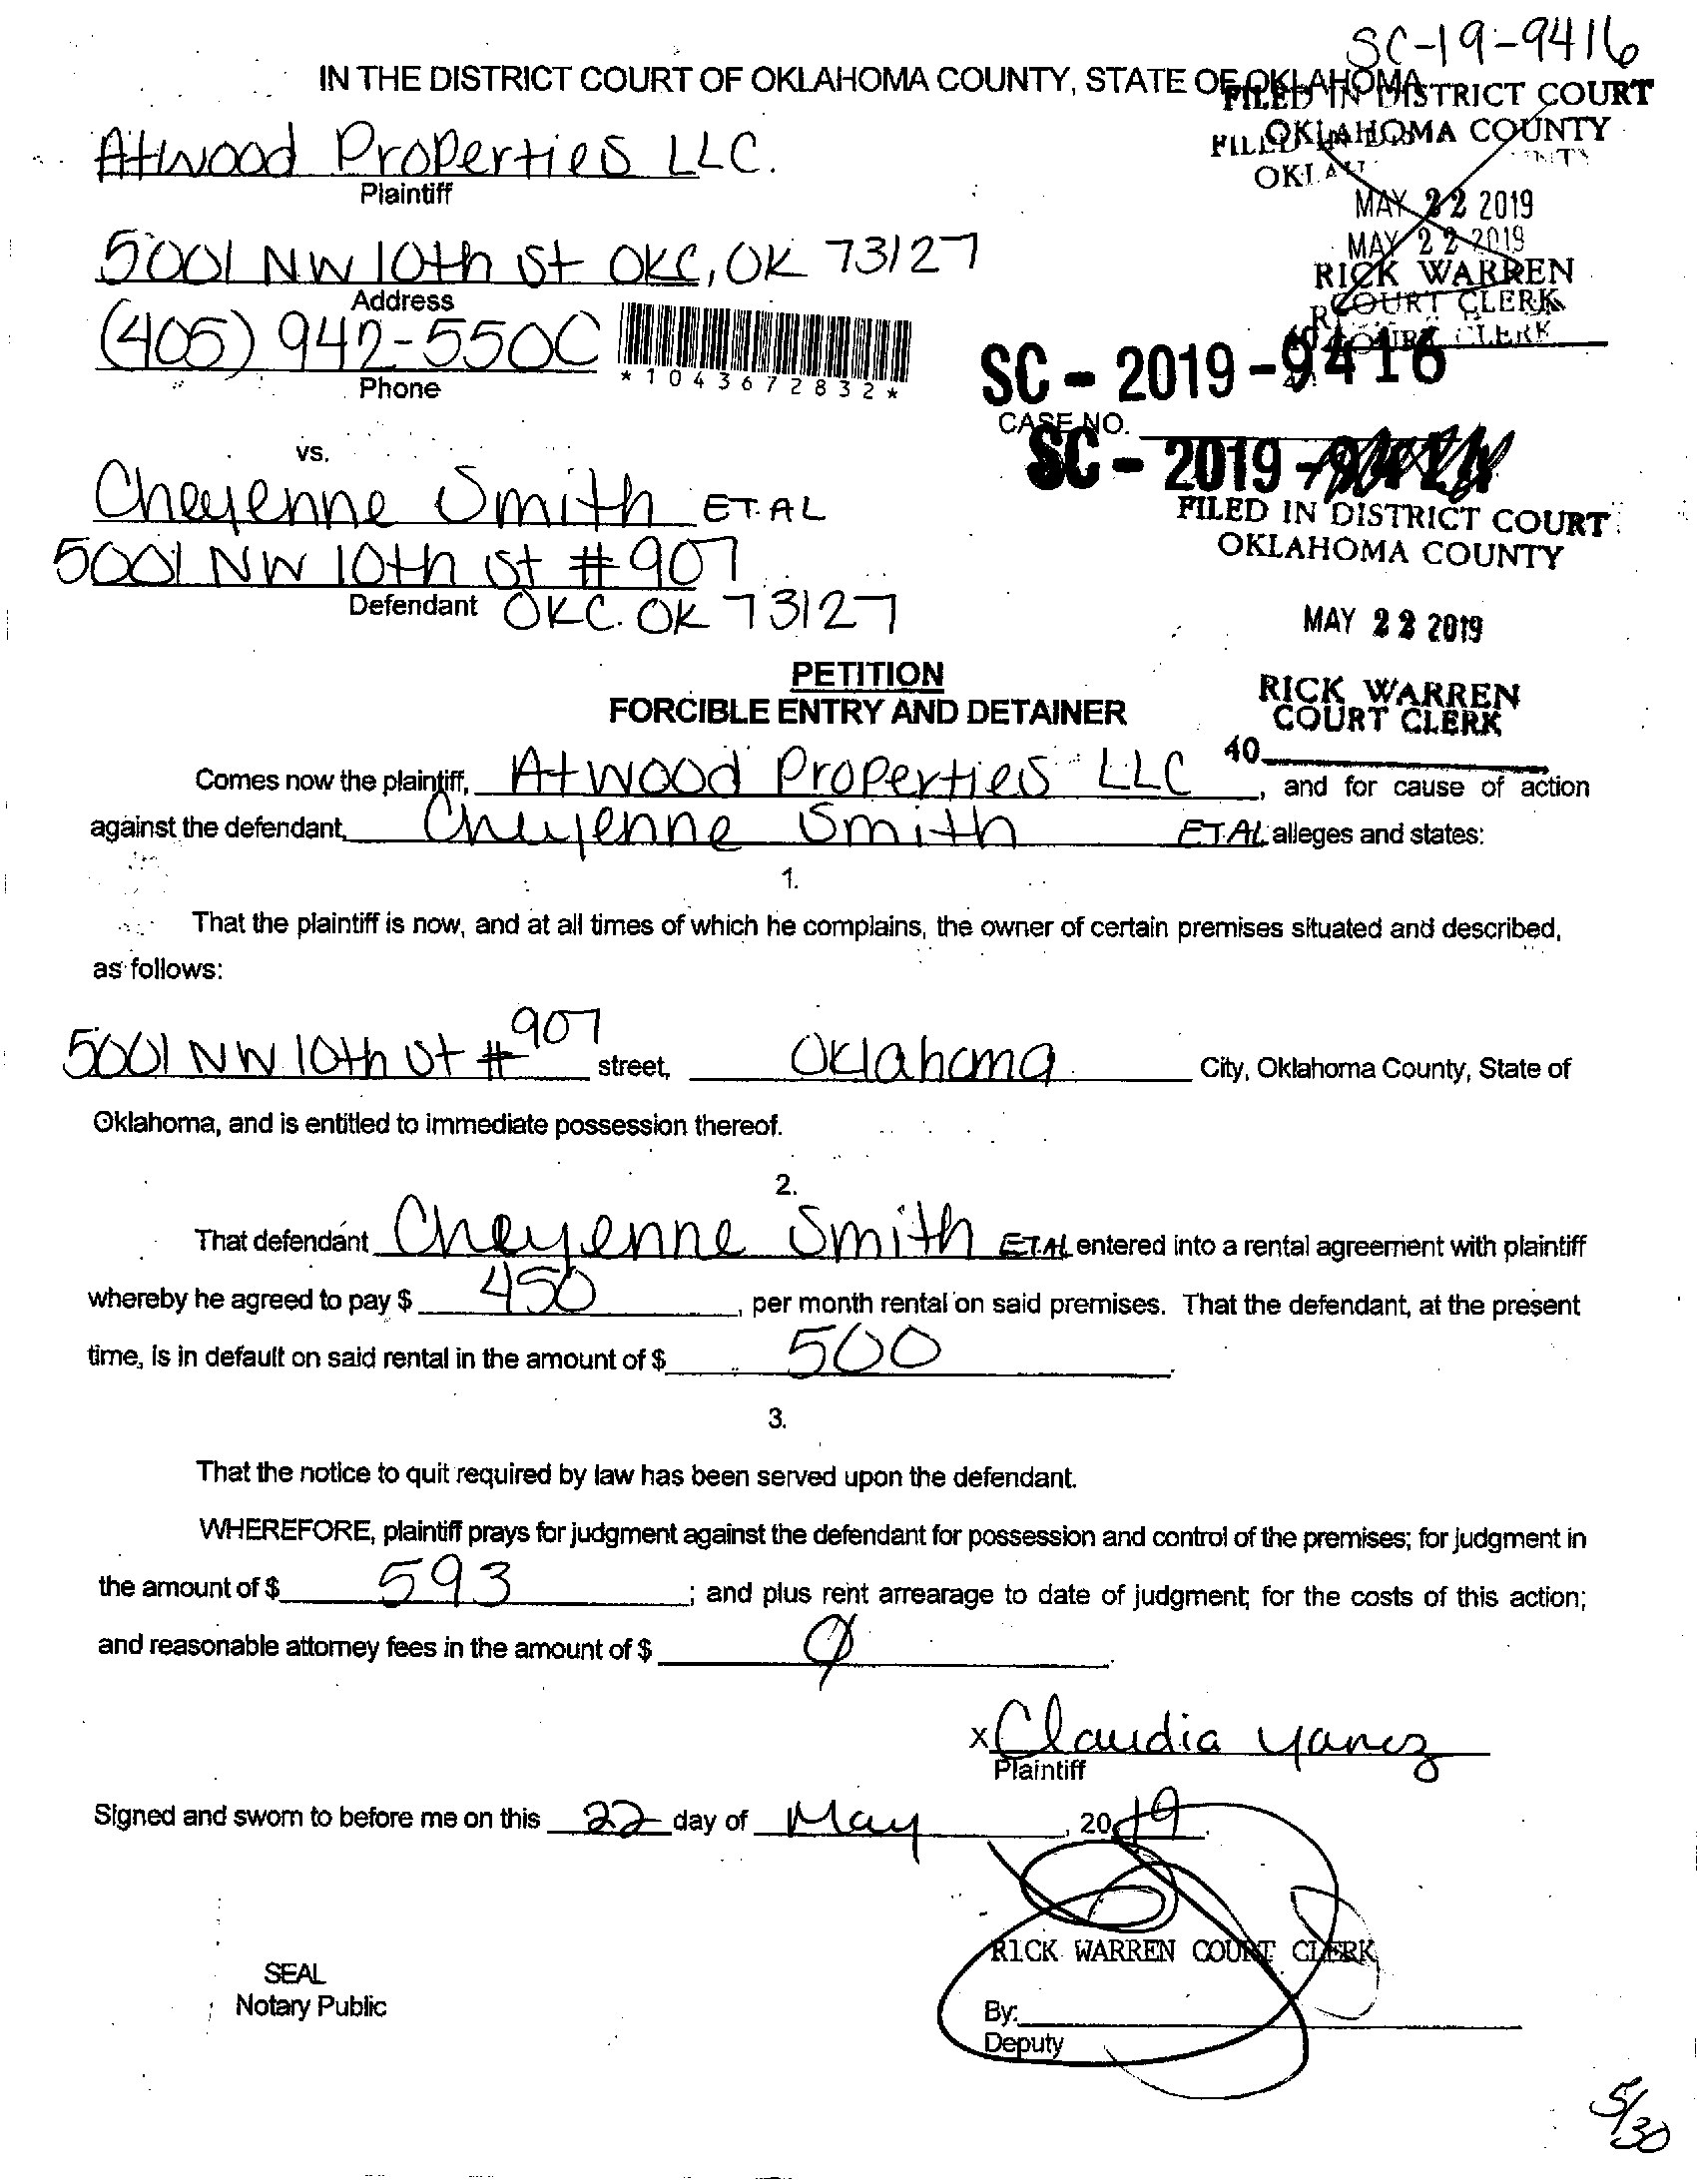 SC-19-9416
IN THE DISTRICT COURT OF OKLAHOMA COUNTY, STATE OF OKLAHOMA
FILED IN DISTRICT COURT
OKLAHOMA COUNTY
Atwood Properties LLC.
Plaintiff
MAY 22 2019
MAY 22 2019
5001 NW 10th St OKC, OK 73127
Address
RICK WARREN
COURT CLERK
COURT CLERK
(405) 942-5500
Phone
*1043672832*
SC - 2019 - 9416
CASE NO.
SC - 2019 -
vs.
Cheyenne Smith ET.AL
5001 NW 10th St #907
Defendant OKC. OK 73127
FILED IN DISTRICT COURT
OKLAHOMA COUNTY
MAY 22 2019
RICK WARREN
COURT CLERK
40
PETITION
FORCIBLE ENTRY AND DETAINER
Comes now the plaintiff, Atwood Properties LLC, and for cause of action
against the defendant, Cheyenne Smith ET.AL alleges and states:
1.
That the plaintiff is now, and at all times of which he complains, the owner of certain premises situated and described,
as follows:
5001 NW 10th St # 907 street, Oklahoma City, Oklahoma County, State of
Oklahoma, and is entitled to immediate possession thereof.
2.
That defendant Cheyenne Smith ET.AL entered into a rental agreement with plaintiff
whereby he agreed to pay $ 450, per month rental on said premises. That the defendant, at the present
time, is in default on said rental in the amount of $ 500.
3.
That the notice to quit required by law has been served upon the defendant.
WHEREFORE, plaintiff prays for judgment against the defendant for possession and control of the premises; for judgment in
the amount of $ 593; and plus rent arrearage to date of judgment; for the costs of this action;
and reasonable attorney fees in the amount of $ 0.
x Claudia Yanez
Plaintiff
Signed and sworn to before me on this 22 day of May, 2019.
RICK WARREN COURT CLERK
SEAL
Notary Public
By:
Deputy
5/30